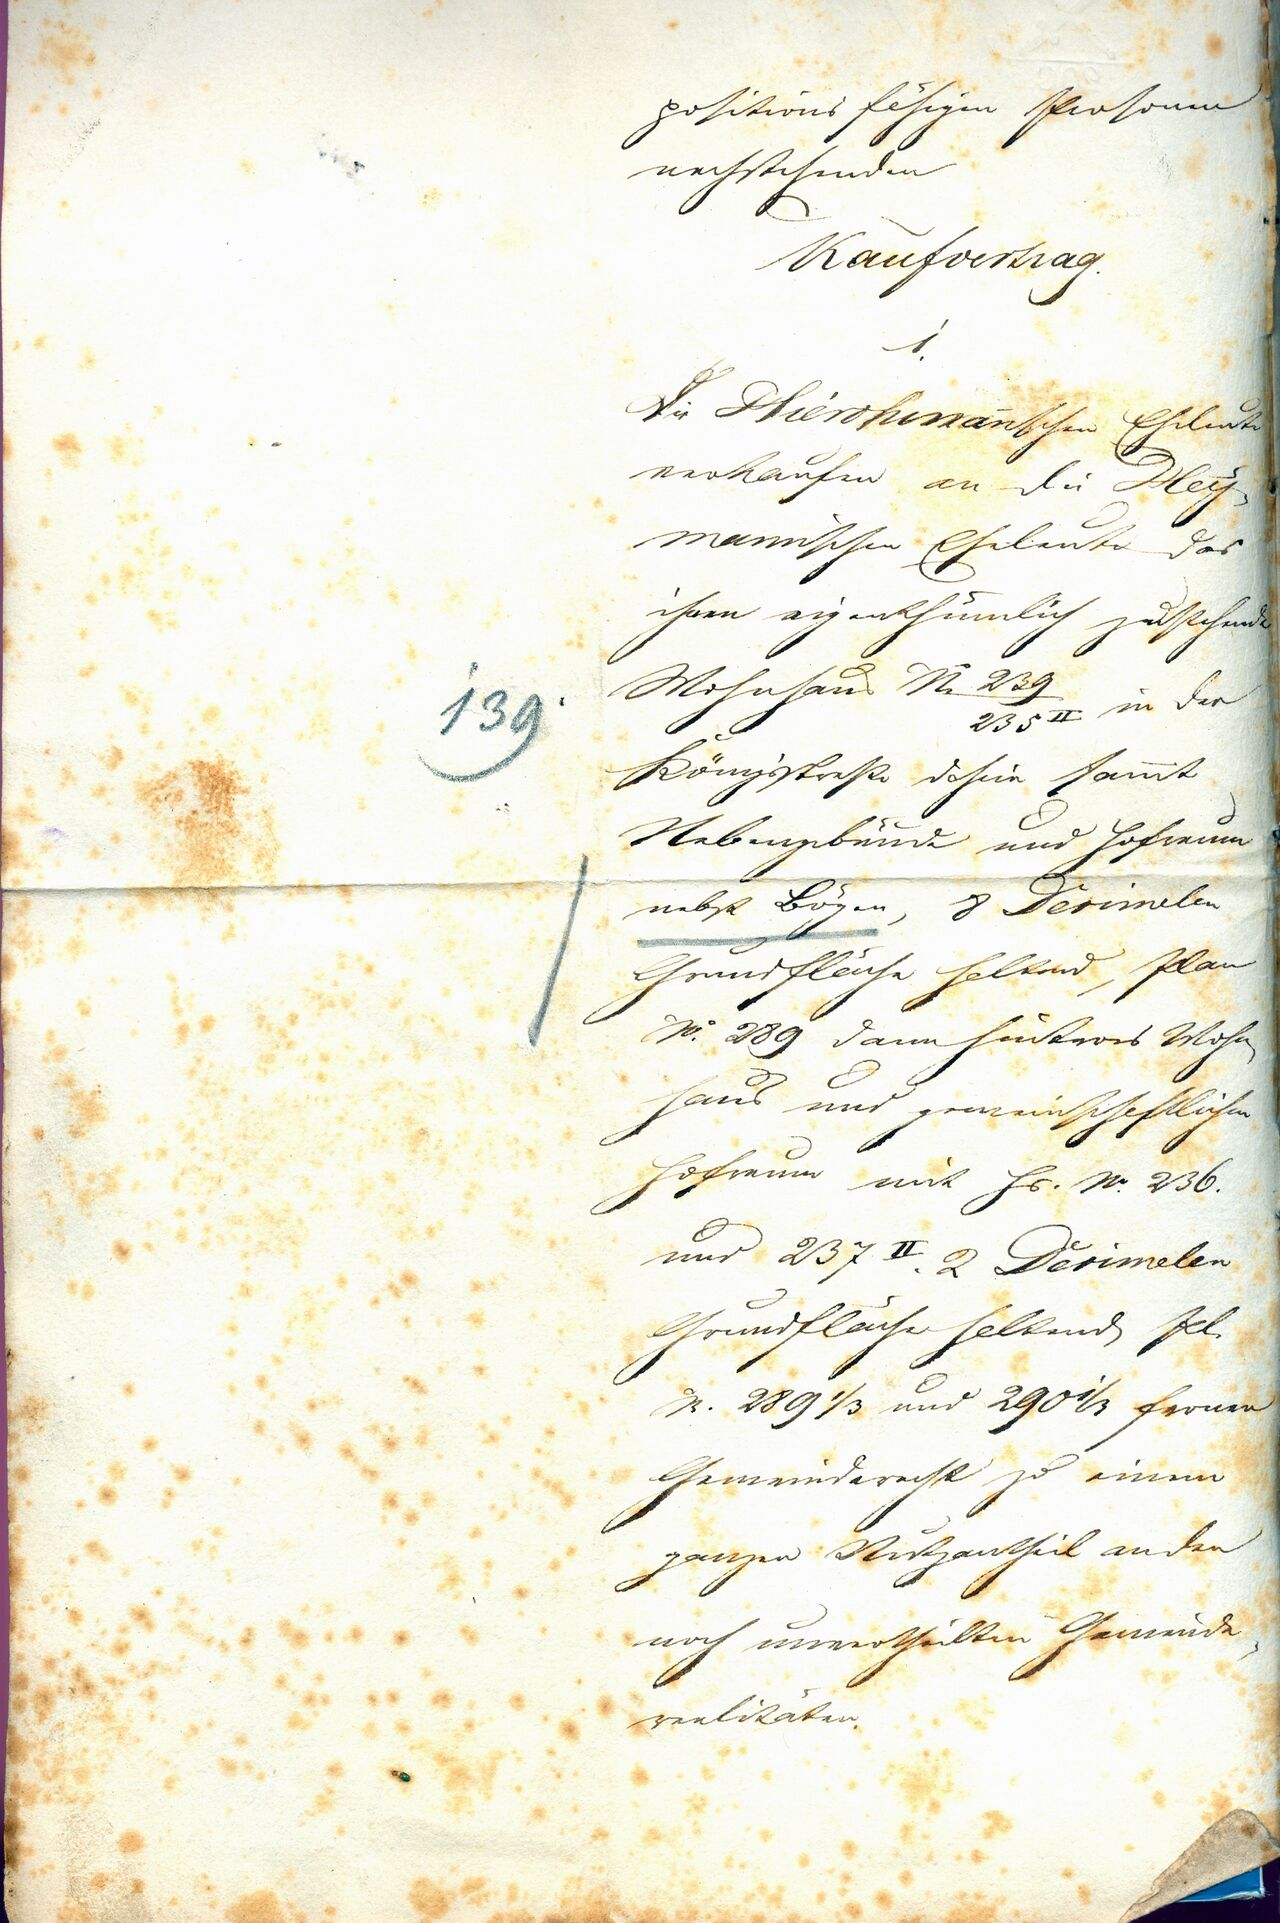 positions fähigen Personen
nachstehenden
Kaufvertrag.
1.
Die
schen Eheleute
verkaufen an die Hey-
mannischen Eheleute das
ihnen eigenthümlich zustehende
Wohnhaus № 239/235 II in der
Königsstraße dahier sammt
Nebengebäude und Hofraum
nebst Bögen, 8 Dezimalen
Grundfläche haltend, Plan
№. 289 dann hinteres Wohn-
haus und gemeinschaftlichen
Hofraum mit Hs. №. 236.
und 237 II. 2 Dezimalen
Grundfläche haltend, Pl.
N. 289 1/3 und 290 1/3 ferner
Gemeinderecht zu einem
ganzen Nutzantheil an den
noch unvertheilten Gemeinde-
realitäten.
139.